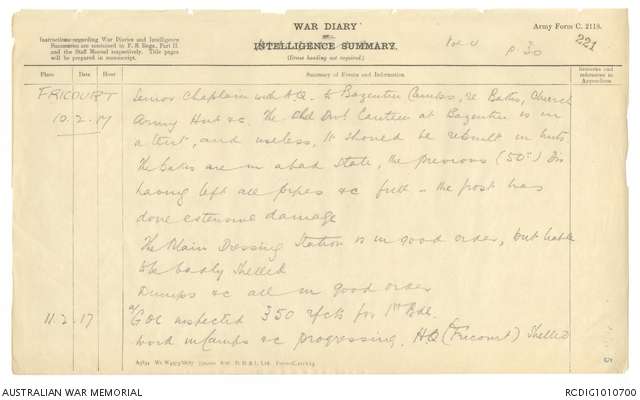 WAR DIARY
or
INTELLIGENCE SUMMARY.
(Erase heading not required.)
Army Form C. 2118.
221
p 30
Instructions regarding War Diaries and Intelligence
Summaries are contained in F. S. Regs., Part II.
and the Staff Manual respectively. Title pages
will be prepared in manuscript.
Place Date Hour Summary of Events and Information Remarks and references to Appendices
FRICOURT Senior Chaplain with A.Q. to Bazentin Camps, re Baths, Church
10.2.17 Army Hut &c. The Old Divl Canteen at Bazentin is in
a tent, and useless, It should be rebuilt in huts
The baths are in a bad state, the previous (50th) Div
having left all pipes &c full - the frost has
done extensive damage
The Main Dressing Station is in good order, but liable
to be badly Shelled
Dumps &c all in good order
11.2.17 GOC inspected 350 rfcts for 1st Bde.
Work in Camps &c progressing. HQ (Fricourt) Shelled
AUSTRALIAN WAR MEMORIAL
RCDIG1010700